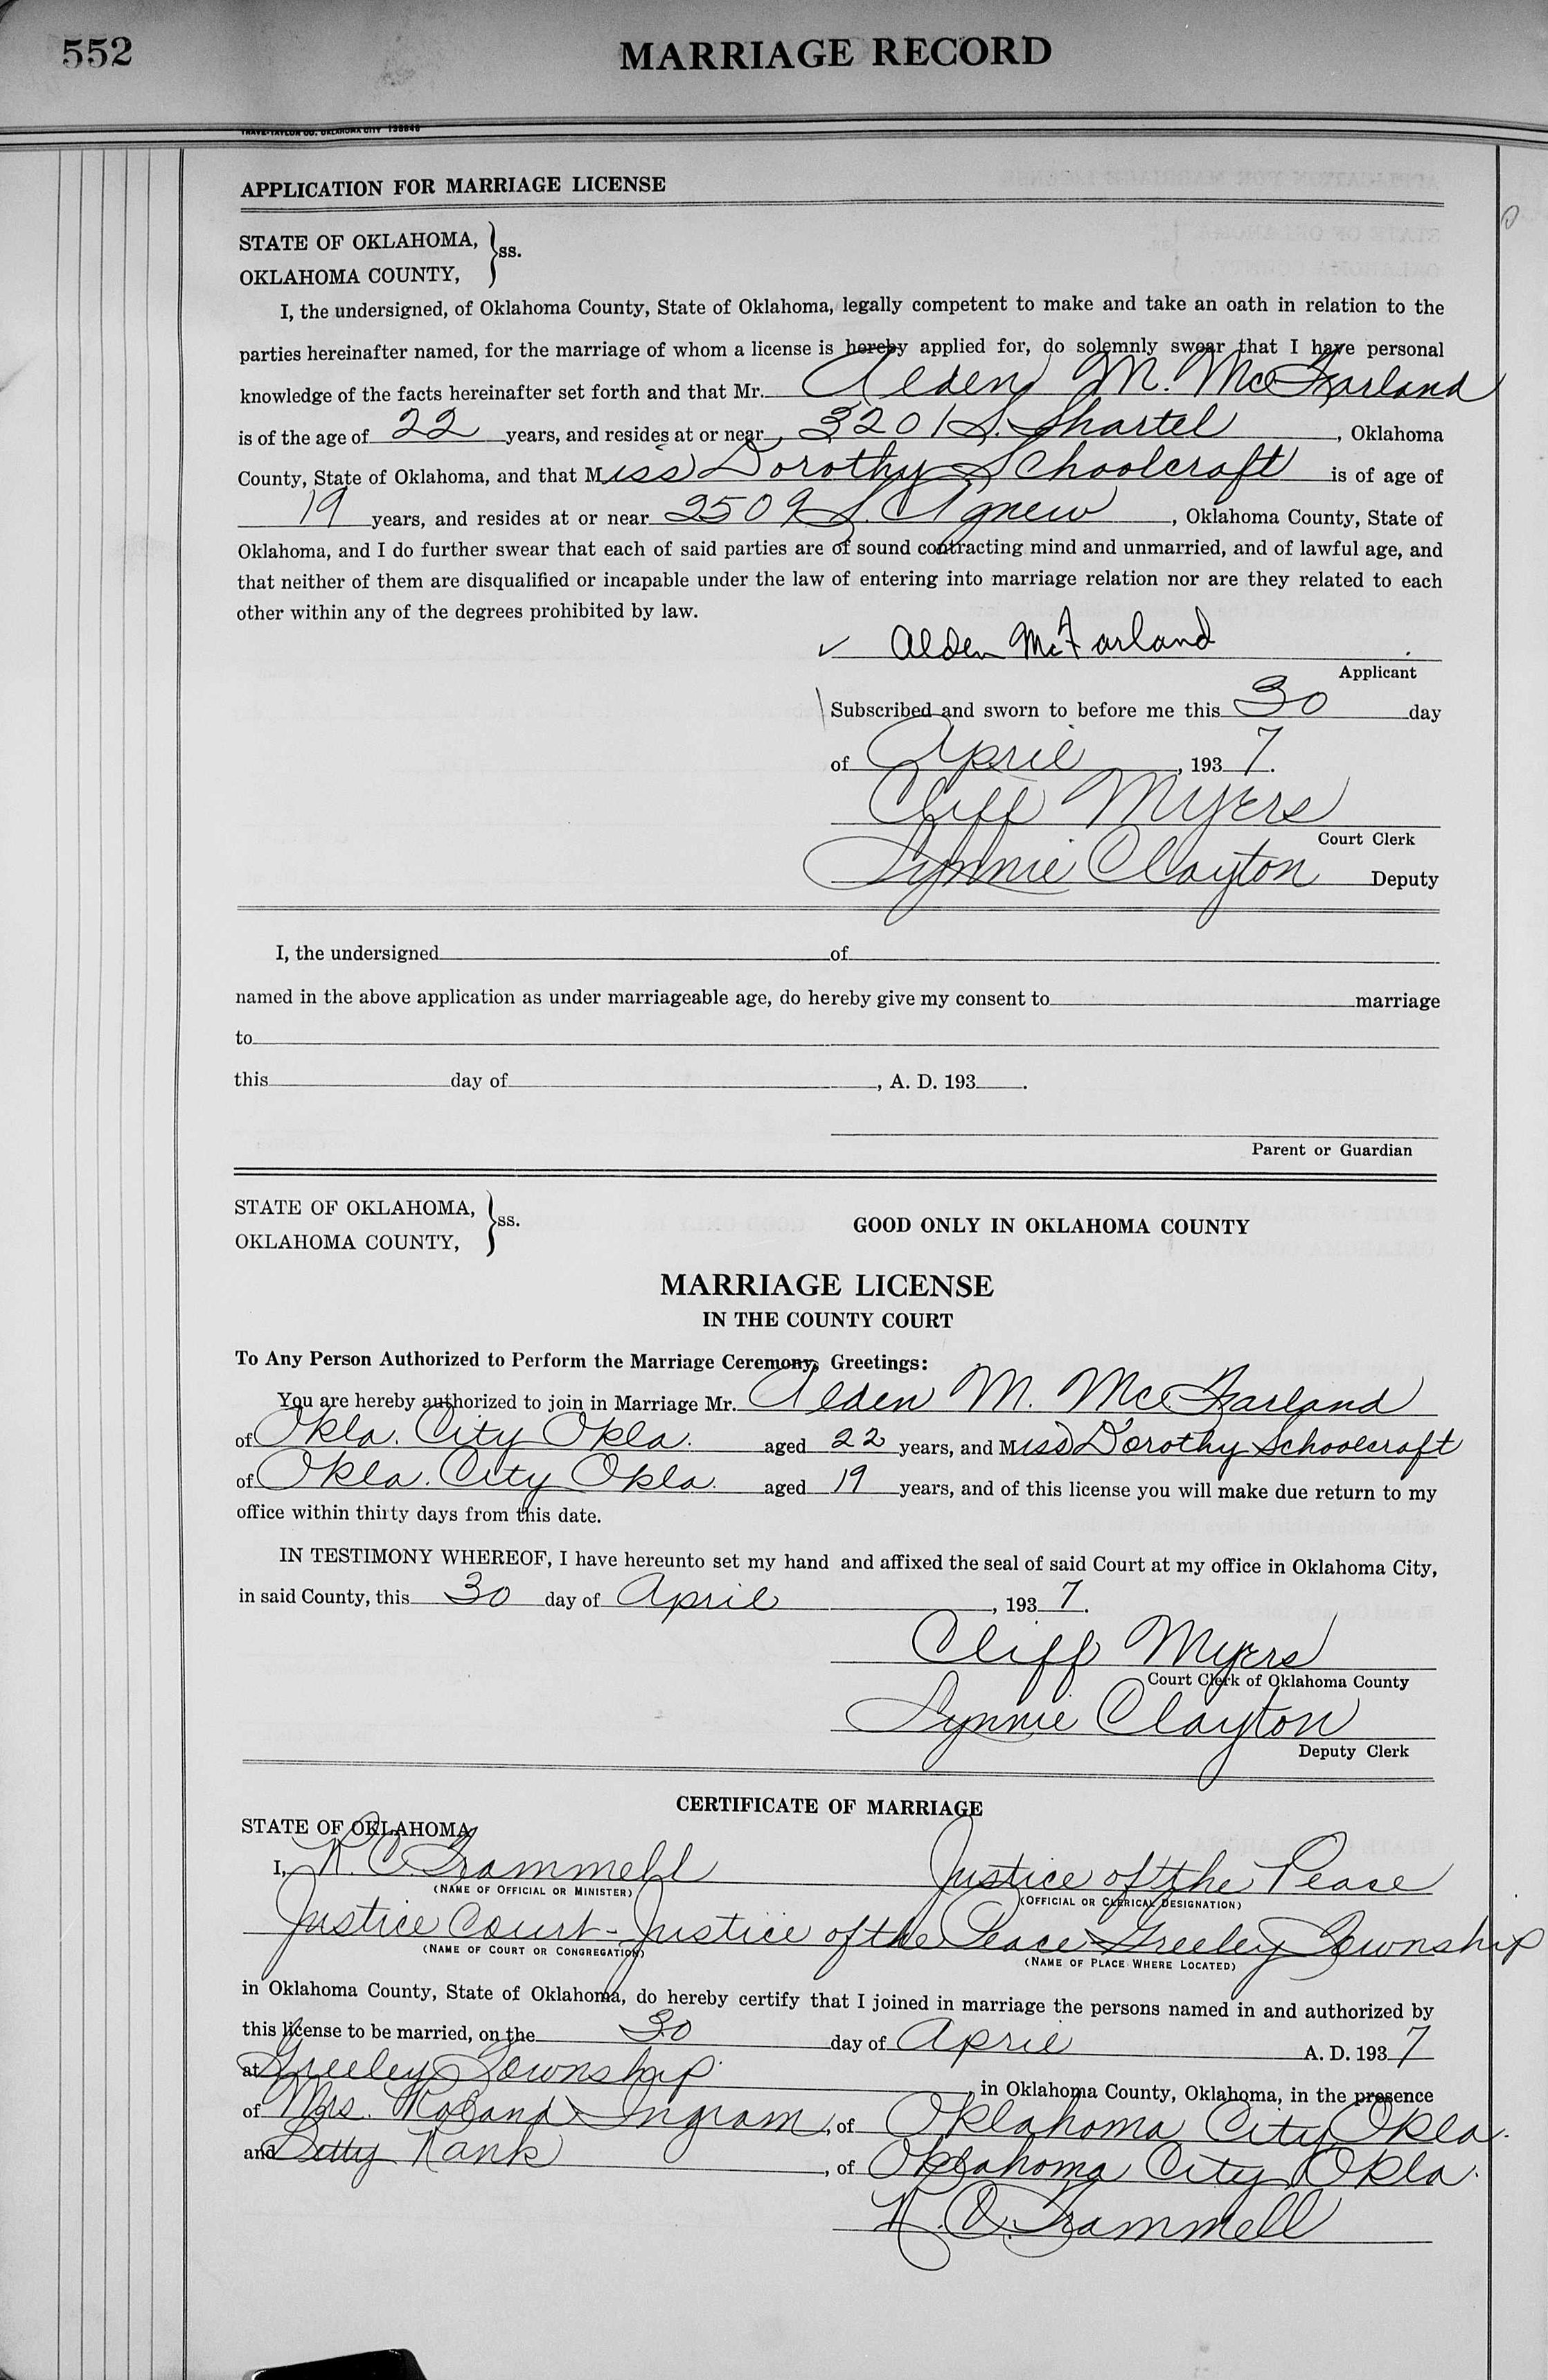 552
MARRIAGE RECORD
TRAVE-TAYLOR CO. OKLAHOMA CITY 138846
APPLICATION FOR MARRIAGE LICENSE
STATE OF OKLAHOMA,
OKLAHOMA COUNTY, } ss.
I, the undersigned, of Oklahoma County, State of Oklahoma, legally competent to make and take an oath in relation to the
parties hereinafter named, for the marriage of whom a license is hereby applied for, do solemnly swear that I have personal
knowledge of the facts hereinafter set forth and that Mr. Alden M. McFarland
is of the age of 22 years, and resides at or near 3201 S. Shartel, Oklahoma
County, State of Oklahoma, and that Miss Dorothy Schoolcraft is of age of
19 years, and resides at or near 2509 S. Agnew, Oklahoma County, State of
Oklahoma, and I do further swear that each of said parties are of sound contracting mind and unmarried, and of lawful age, and
that neither of them are disqualified or incapable under the law of entering into marriage relation nor are they related to each
other within any of the degrees prohibited by law.
✓ Alden McFarland
Applicant
Subscribed and sworn to before me this 30 day
of April, 1937.
Cliff Myers
Court Clerk
Lynnie Clayton Deputy
I, the undersigned of
named in the above application as under marriageable age, do hereby give my consent to marriage
to
this day of , A. D. 193 .
Parent or Guardian
STATE OF OKLAHOMA,
OKLAHOMA COUNTY, } ss.
GOOD ONLY IN OKLAHOMA COUNTY
MARRIAGE LICENSE
IN THE COUNTY COURT
To Any Person Authorized to Perform the Marriage Ceremony, Greetings:
You are hereby authorized to join in Marriage Mr. Alden M. McFarland
of Okla. City Okla. aged 22 years, and Miss Dorothy Schoolcraft
of Okla. City Okla. aged 19 years, and of this license you will make due return to my
office within thirty days from this date.
IN TESTIMONY WHEREOF, I have hereunto set my hand and affixed the seal of said Court at my office in Oklahoma City,
in said County, this 30 day of April, 1937.
Cliff Myers
Court Clerk of Oklahoma County
Lynnie Clayton
Deputy Clerk
CERTIFICATE OF MARRIAGE
STATE OF OKLAHOMA
I, R. C. Trammell Justice of the Peace
(NAME OF OFFICIAL OR MINISTER) (OFFICIAL OR CLERICAL DESIGNATION)
Justice Court - Justice of the Peace - Greeley Township
(NAME OF COURT OR CONGREGATION) (NAME OF PLACE WHERE LOCATED)
in Oklahoma County, State of Oklahoma, do hereby certify that I joined in marriage the persons named in and authorized by
this license to be married, on the 30 day of April A. D. 1937
at Greeley Township, in Oklahoma County, Oklahoma, in the presence
of Mrs. Roland Ingram, of Oklahoma City Okla.
and Betty Rank, of Oklahoma City Okla.
R. C. Trammell